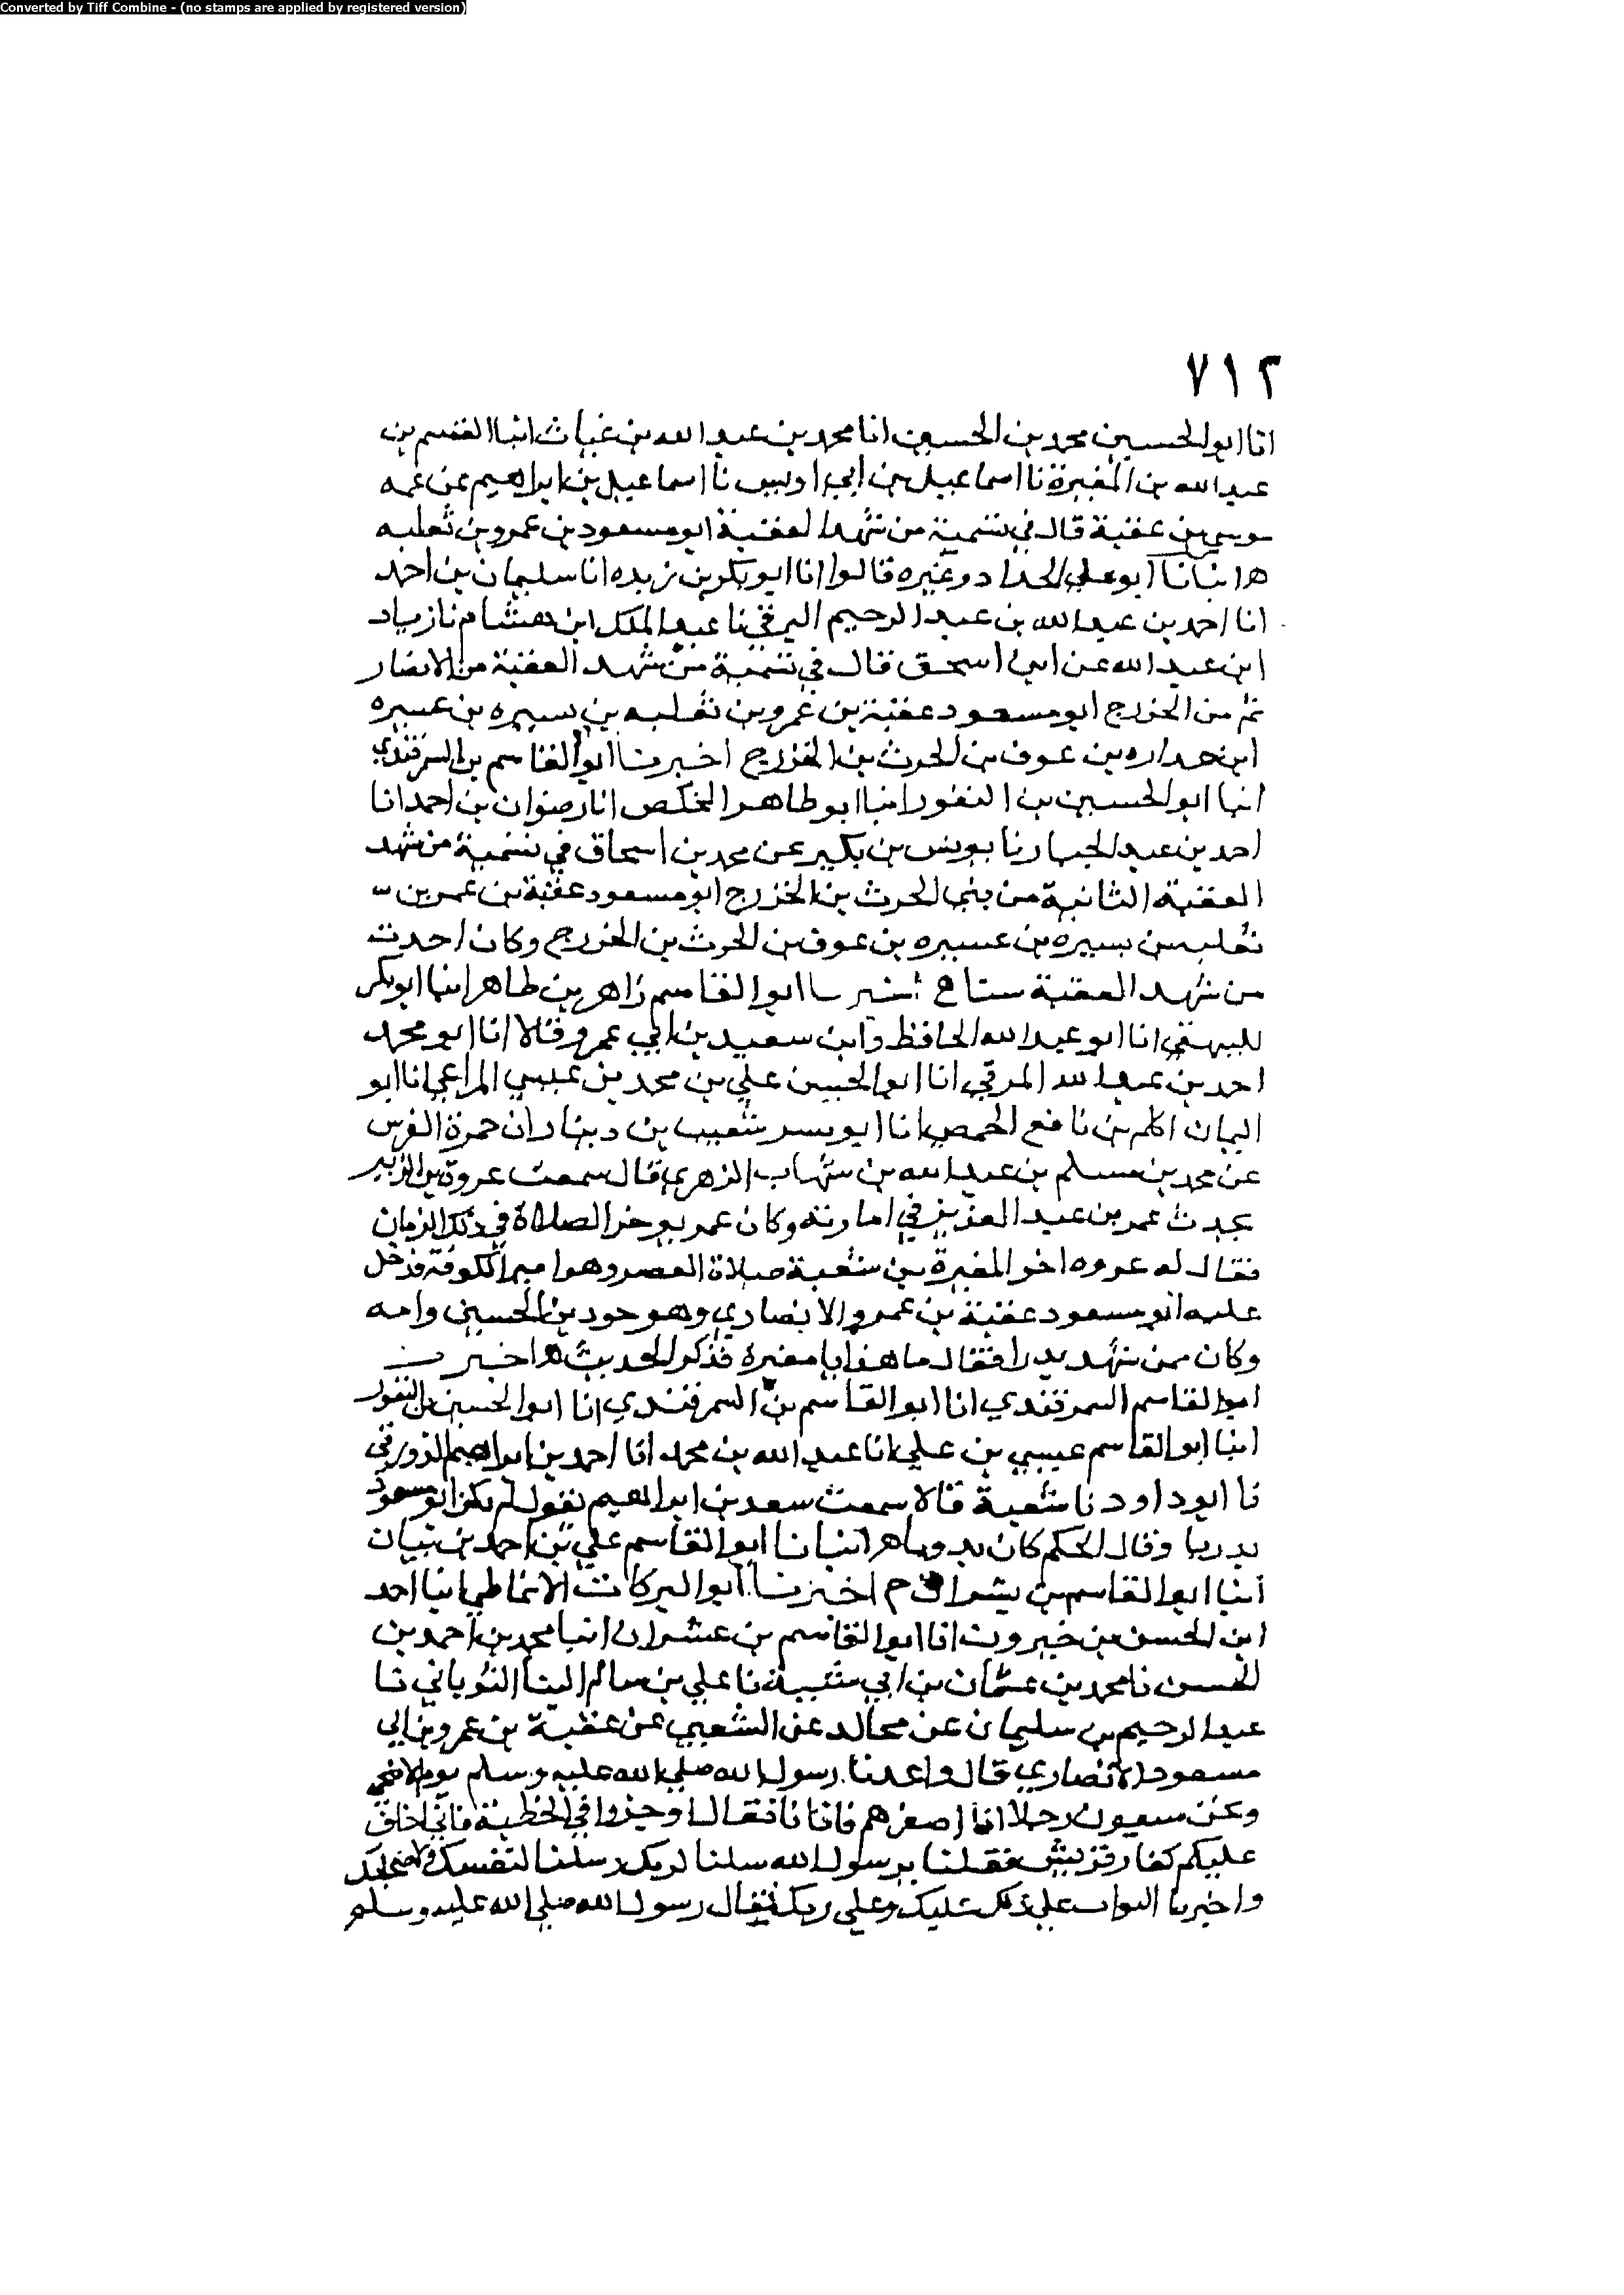 Converted by Tiff Combine - (no stamps are applied by registered version)
٧١٢
انا ابو الحسين محمد بن الحسين انا محمد بن عبد الله بن عياث انبا القسم بن
عبد الله بن المغيرة نا اسماعيل بن ابي اويس نا اسماعيل بن ابراهيم عن عمه
موسى بن عقبة قال في تسمية من شهد العقبة ابو مسعود بن عمرو بن ثعلبه
ابو علي الحداد وغيره قالوا انا ابو بكر بن زيده انا سليمان بن احمد
انا احمد بن عبد الله بن عبد الرحيم البرقي نا عبد الملك ابن هشام نا زياد
ابن عبد الله عن ابي اسحق قال في تسمية من شهد العقبة من الانصار
ثم من الخزرج ابو مسعود عقبة بن عمرو بن ثعلبه بن يسيره بن عسيره
ابن حداره بن عوف بن الحرث بن الخزرج اخبرنا ابو القاسم بن السمرقندي
انبا ابو الحسين بن النقور انبا ابو طاهر المخلص انا رضوان بن احمد انا
احمد بن عبد الجبار نا يونس بن بكير عن محمد بن اسحاق في تسمية من شهد
العقبة الثانية من بني الحرث بن الخزرج ابو مسعود عقبة بن عمر بن
ثعلبه بن يسيره بن عسيره بن عوف بن الحرث بن الخزرج وكان احدث
من شهد العقبة سنا ابو القاسم زاهر بن طاهر انبا ابو بكر
البيهقي انا ابو عبد الله الحافظ وابن سعيد بن ابي عمرو قالا انا ابو محمد
احمد بن عبد الله المزني انا ابو الحسين علي بن محمد بن عيسى انا ابو
اليمان الحكم بن نافع الحمصي انا ابو بسر شعيب بن دينار ان حمزة القرشي
عن محمد بن مسلم بن عبد الله بن شهاب الزهري قال سمعت عروة بن الزبير
يحدث عمر بن عبد العزيز في امارته وكان عمر يوخر الصلاة في ذلك الزمان
فقال له عروه اخر المغيرة بن شعبة صلاة العصر وهو امير الكوفة فدخل
عليه ابو مسعود عقبة بن عمرو الانصاري وهو جد بن الحسين وامه
وكان ممن شهد بدرا فقال ما هذا يا مغيرة فذكر الحديث اخبرنا
ابو القاسم السمرقندي انا ابو القاسم بن السمرقندي انا ابو الحسين بن النقور
انبا ابو القاسم عيسى بن علي انا عبد الله بن محمد انا احمد بن ابراهيم الدورقي
نا ابو داود نا شعبة قالا سمعت سعد بن ابراهيم يقول لم يكن ابو مسعود
بدريا وقال الحكم كان بدريا انبانا ابو القاسم علي بن احمد بن بيان
انبا ابو القاسم بن بشران ح اخبرنا ابو البركات الانماطي انبا احمد
ابن الحسن بن خيرون انا ابو القاسم بن بشران انبا محمد بن احمد بن
الحسن نا محمد بن عثمان بن ابي شيبة نا علي بن سالم نا
عبد الرحيم بن سليمان عن مجالد عن الشعبي عن عقبة بن عمرو بن ابي
مسعود الانصاري قال واعدنا رسول الله صلى الله عليه وسلم يوم الاضحى
ونحن سبعون رجلا انا اصغرهم فاتانا فقال اوجزوا في الخطبة فاني اخاف
عليكم كفار قريش فقلنا يرسول الله سلنا لربك وسلنا لنفسك
واخبرنا الثواب على ذلك عليك وعلى ربك فقال رسول الله صلى الله عليه وسلم